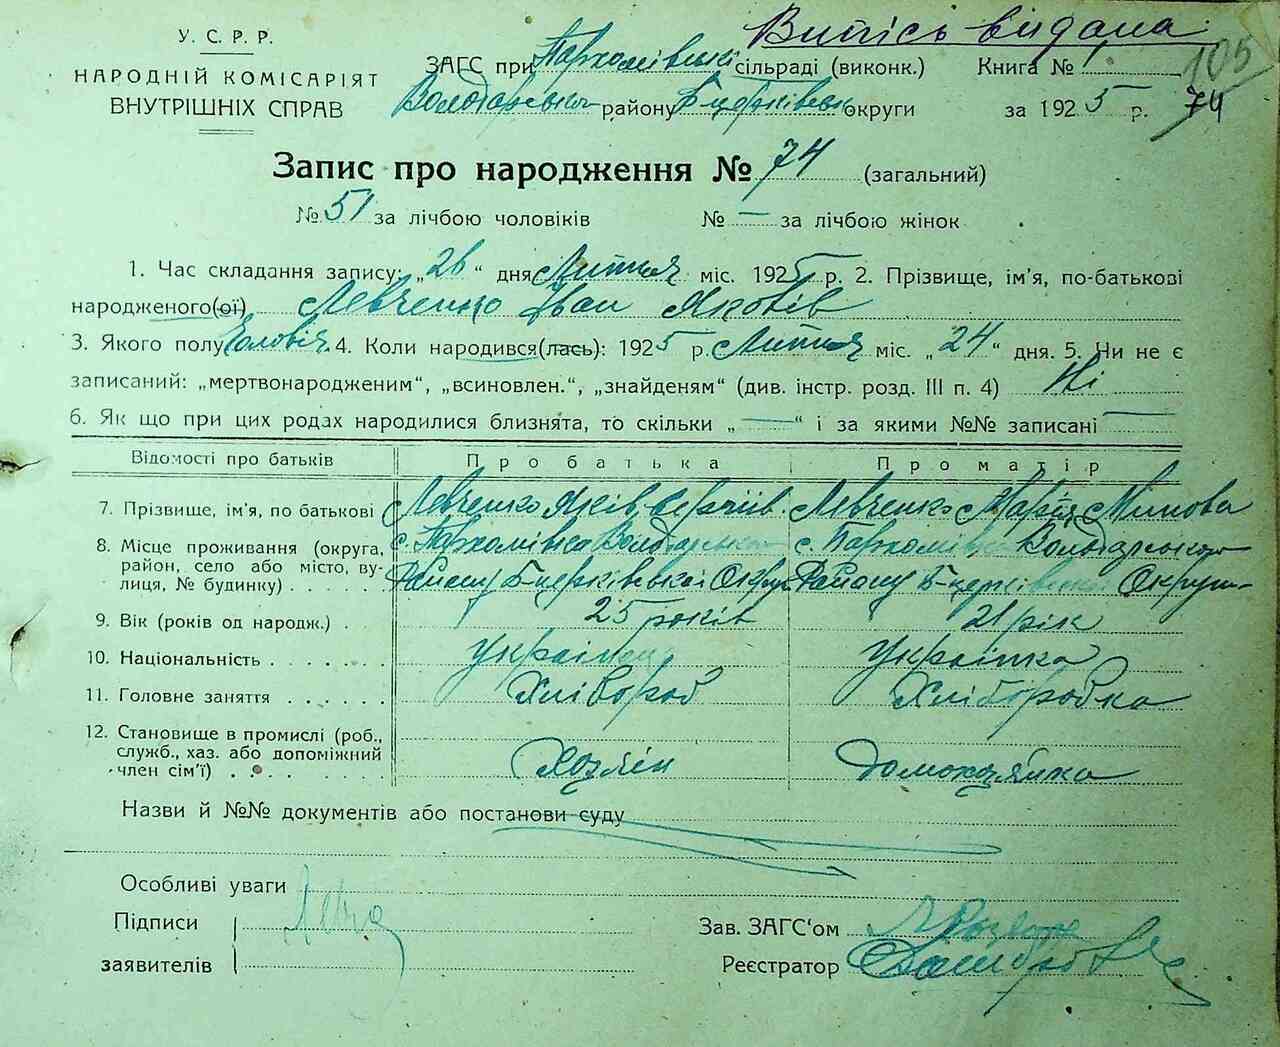 Витісь видана
У. С. Р. Р.
НАРОДНІЙ КОМІСАРІЯТ
ВНУТРІШНІХ СПРАВ
ЗАГС при Пархомівській сільраді (виконк.) Книга № 1
105
Володарського району Б-церківської округи за 1925 р. 74
Запис про народження № 74 (загальний)
№ 51 за лічбою чоловіків № — за лічбою жінок
1. Час складання запису: „26“ дня Лютня міс. 1925 р. 2. Прізвище, ім'я, по-батькові
народженого(ої) Левченко Іван Яковів
3. Якого полу Чоловіч. 4. Коли народився(лась): 1925 р. Лютня міс. „24“ дня. 5. Чи не є
записаний: „мертвонародженим“, „всиновлен.“, „знайденям“ (див. інстр. розд. III п. 4) Ні
6. Як що при цих родах народилися близнята, то скільки „—“ і за якими №№ записані —
Відомості про батьків Про батька Про матір
7. Прізвище, ім'я, по батькові Левченко Яків Сергіїв. Левченко Марія Минова
8. Місце проживання (округа, район, село або місто, вулиця, № будинку) с. Пархомівка Володарського Району Б-церківської Округи с. Пархомівка Володарського Району Б-церківської Округи
9. Вік (років од народж.) 25 років 21 рік
10. Національність Українець Українка
11. Головне заняття Хлібороб Хліборобка
12. Становище в промислі (роб., служб., хаз. або допоміжний член сім'ї) Хозяїн домохазяйка
Назви й №№ документів або постанови суду
Особливі уваги
Підписи
Зав. ЗАГС'ом
заявителів
Реєстратор